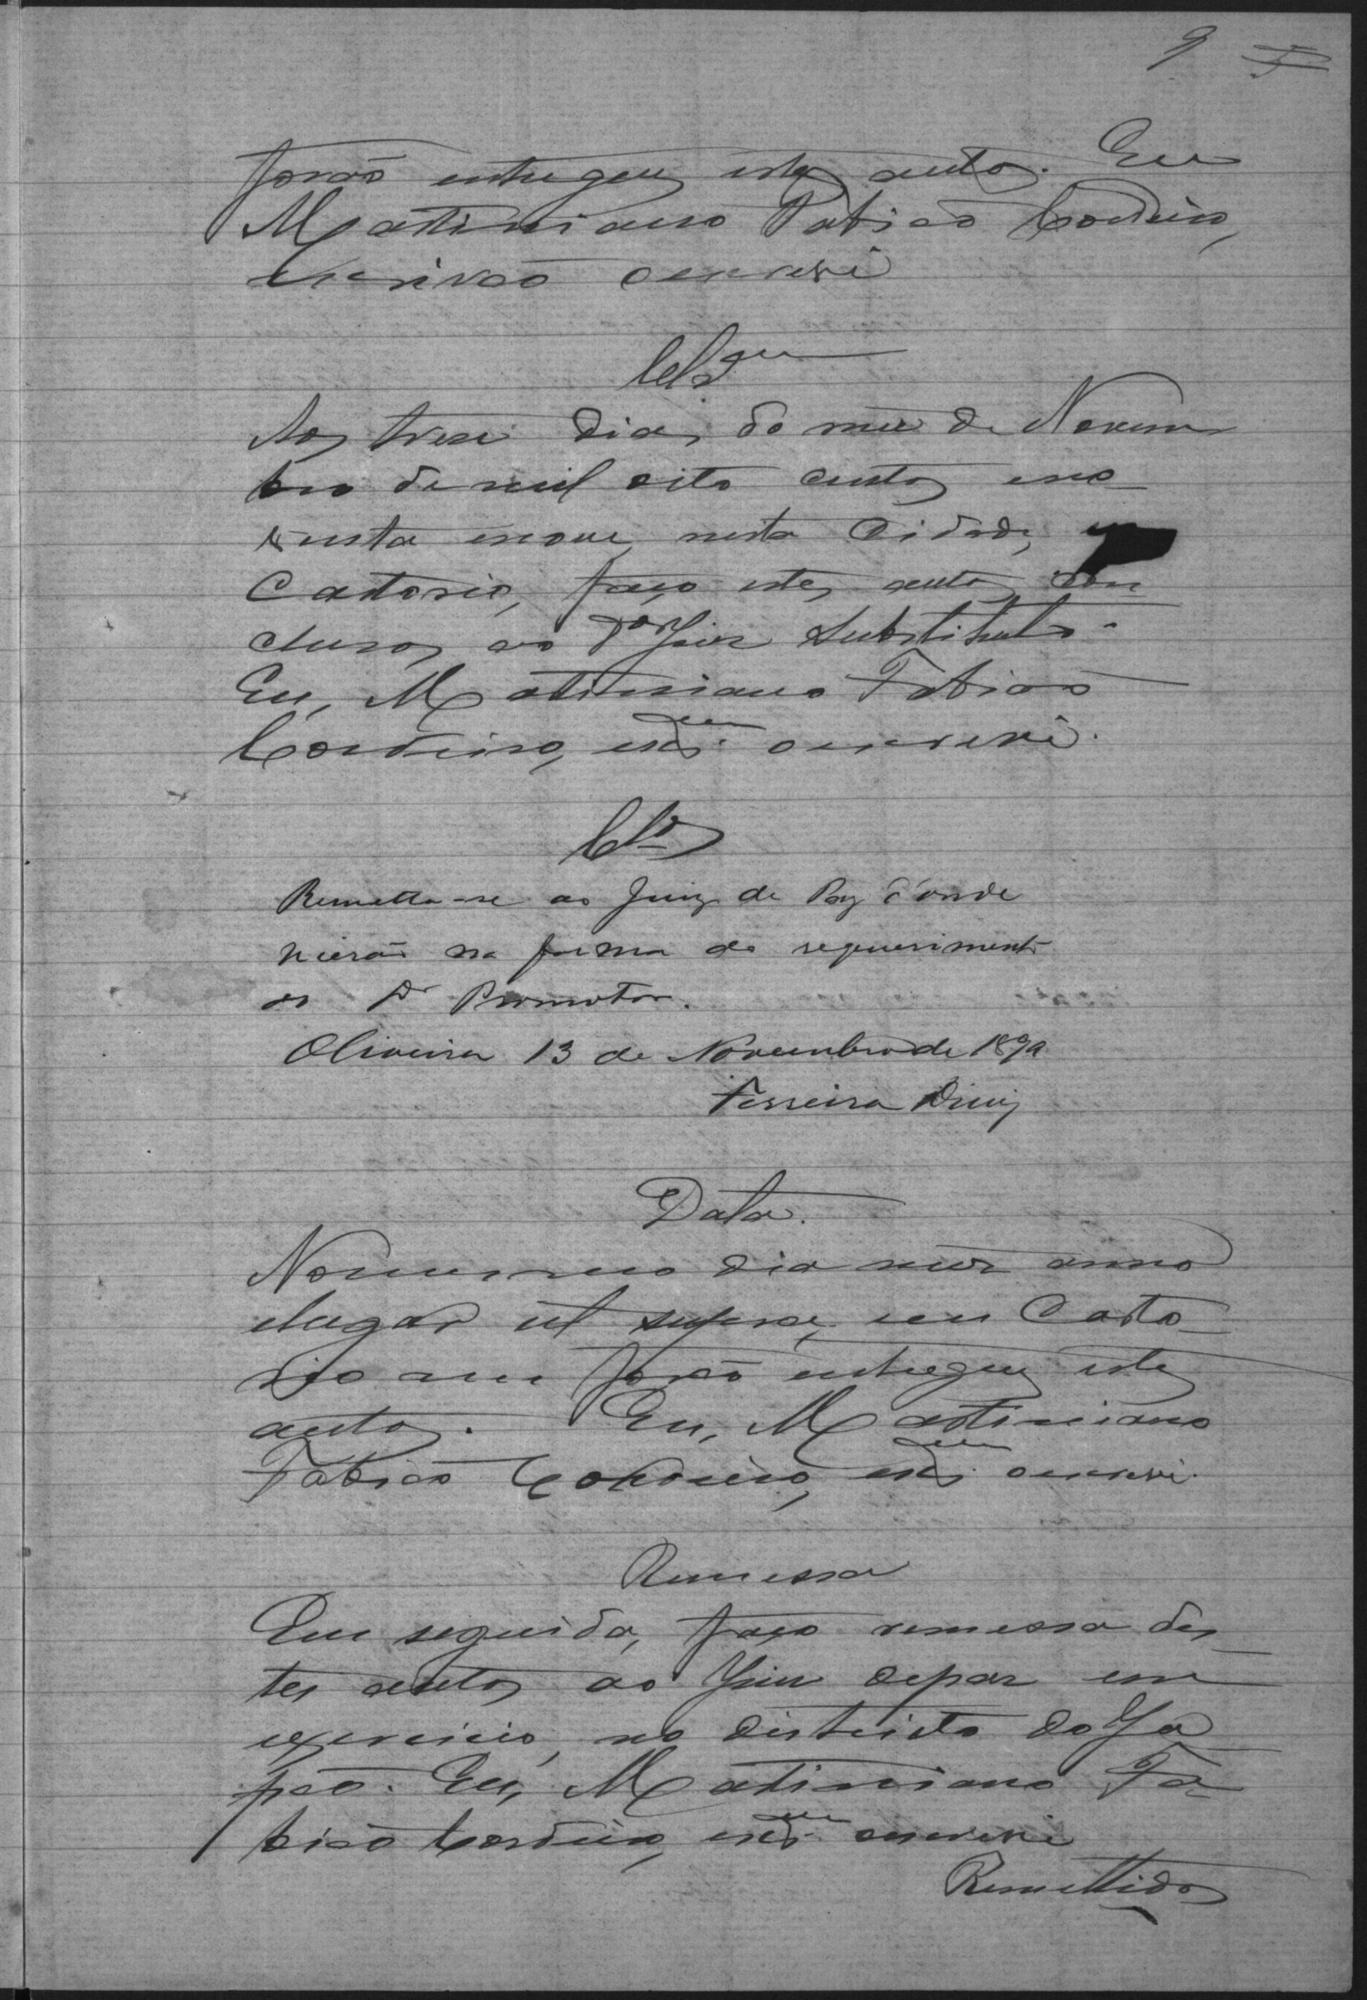 9 5
forão entregues estes autos. Eu
Martiniano Fabião Cordeiro,
escrivão o escrevi
Clsam
Aos treze dias do mez de Novem
bro de mil oito centos e no
venta e nove, nesta Cidade, em
Cartorio, faço estes autos con
clusos ao Dor Juiz Substituto.
Eu, Martiniano Fabião
Cordeiro, escram o escrevi.
Clos
Remetta-se ao Juiz de Paz d'onde
vierão na forma do requerimento
do Dr Promotor.
Oliveira 13 de Novembro de 1899
Ferreira Diniz
Data.
No mesmo dia mez anno
e lugar ut supra, em Carto
rio me forão entregues estes
autos. Eu, Martiniano
Fabião Cordeiro, escram o escrevi.
Remessa
Em seguida, faço remessa des
tes autos ao Juiz de paz em
exercicio, no districto do Ja
pão. Eu, Martiniano Fa
bião Cordeiro, escram o escrevi
Remettidos